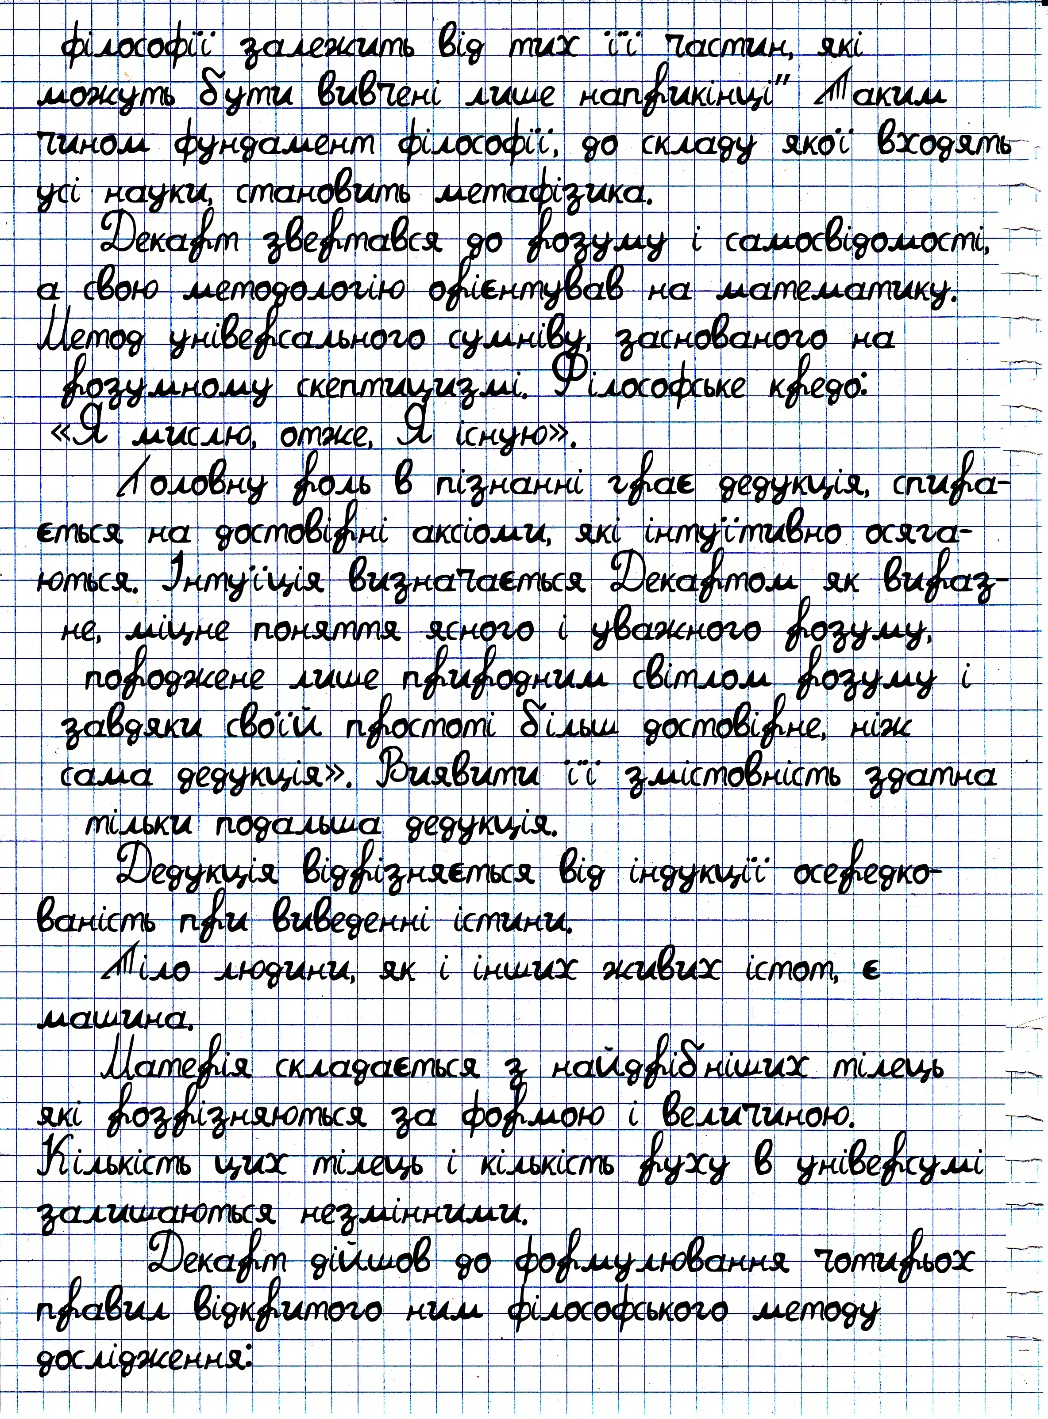 філософії залежить від тих її частин, які
можуть бути вивчені лише наприкінці" Таким
чином фундамент філософії, до складу якої входять
усі науки, становить метафізика.
Декарт звертався до розуму і самосвідомості,
а свою методологію орієнтував на математику.
Метод універсального сумніву, заснованого на
розумному скептицизмі. Філософське кредо:
«Я мислю, отже, Я існую».
Головну роль в пізнанні грає дедукція, спира-
ється на достовірні аксіоми, які інтуїтивно осяга-
ються. Інтуїція визначається Декартом як вираз-
не, міцне поняття ясного і уважного розуму,
породжене лише природним світлом розуму і
завдяки своїй простоті більш достовірне, ніж
сама дедукція». Виявити її змістовність здатна
тільки подальша дедукція.
Дедукція відрізняється від індукції осередко-
ваність при виведенні істини.
Тіло людини, як і інших живих істот, є
машина.
Матерія складається з найдрібніших тілець
які розрізняються за формою і величиною.
Кількість цих тілець і кількість руху в універсумі
залишаються незмінними.
Декарт дійшов до формулювання чотирьох
правил відкритого ним філософського методу
дослідження: